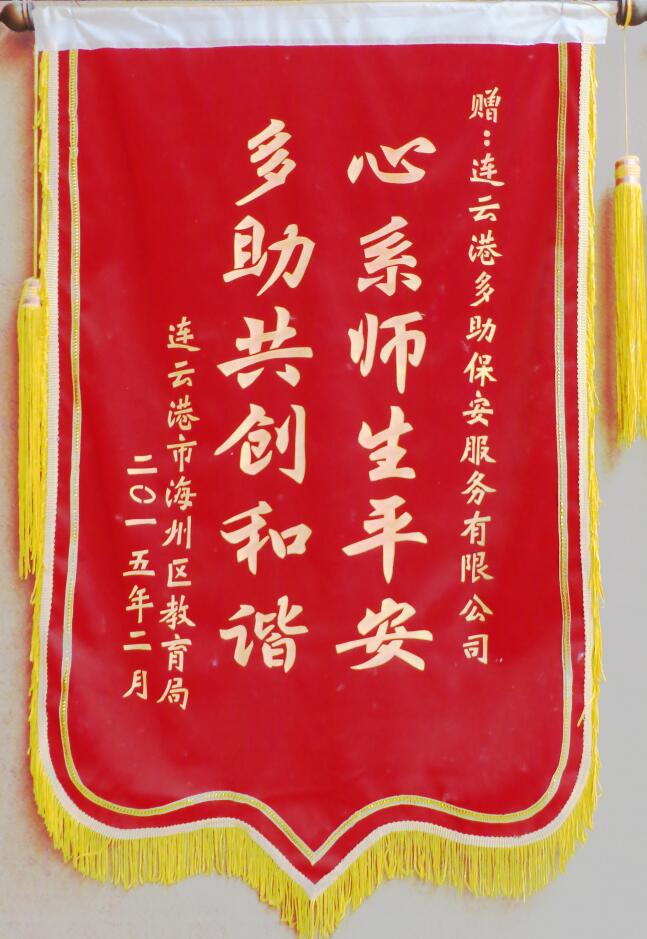 赠：连云港多助保安服务有限公司
心系师生平安
多助共创和谐
连云港市海州区教育局
二〇一五年二月